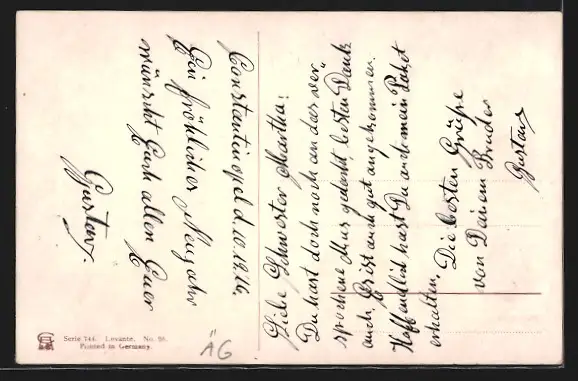 Constantinopel d. 10.12.16.
Ein fröhliches Neujahr
wünscht Euch allen Euer
Gustav.
Liebe Schwester Martha!
Du hast doch noch an das ver-
sprochene Mus gedacht, besten Dank
auch. Es ist auch gut angekommen.
Hoffentlich hast Du auch mein Paket
erhalten.
Die besten Grüße
von Deinem Bruder
Gustav
Serie 744. Levante. No.
Printed in Germany.
ÄG